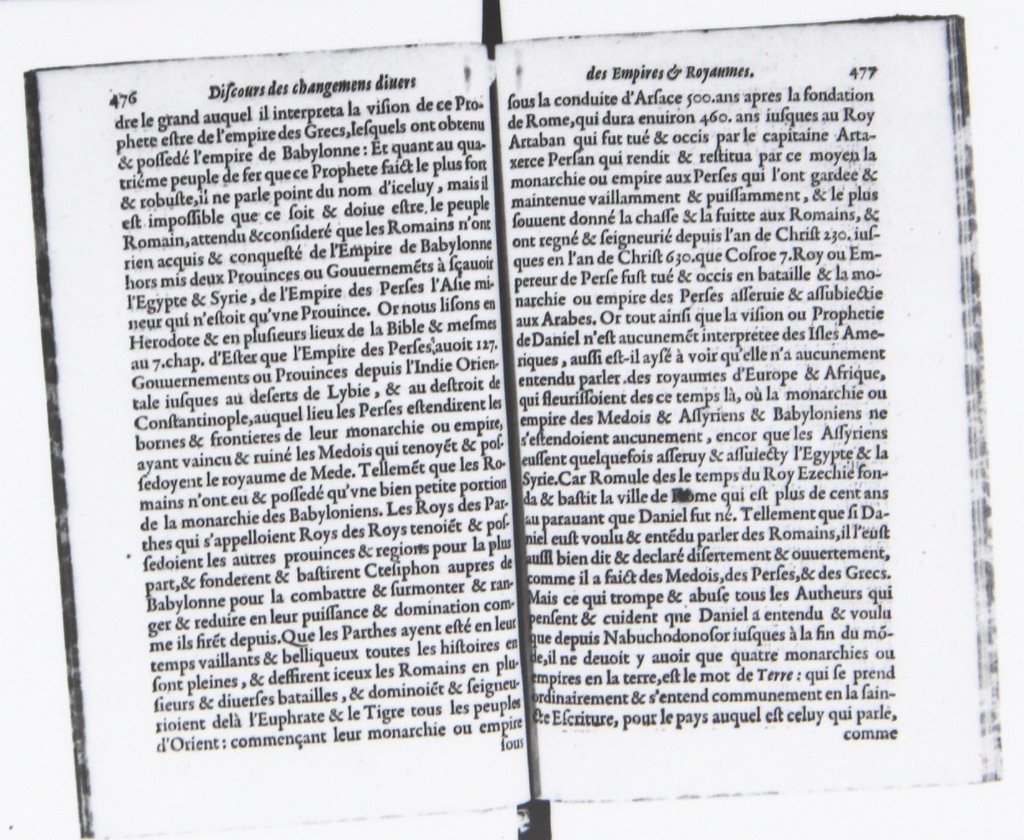 476 Diſcours des changemens diuers
dre le grand auquel il interpreta la viſion de ce Pro-
phete eſtre de l'empire des Grecs, leſquels ont obtenu
& poſſedé l'empire de Babylonne: Et quant au qua-
triéme peuple de fer que ce Prophete faict le plus fort
& robuſte, il ne parle point du nom d'iceluy, mais il
eſt impoſſible que ce ſoit & doiue eſtre le peuple
Romain, attendu & conſideré que les Romains n'ont
rien acquis & conqueſté de l'Empire de Babylonne
hors mis deux Prouinces ou Gouuernemẽts à ſçauoir
l'Egypte & Syrie, de l'Empire des Perſes l'Aſie mi-
neur qui n'eſtoit qu'vne Prouince. Or nous liſons en
Herodote & en pluſieurs lieux de la Bible & meſmes
au 7. chap. d'Eſter que l'Empire des Perſes, auoit 127.
Gouuernements ou Prouinces depuis l'Indie Orien-
tale iuſques au deſerts de Lybie, & au deſtroit de
Conſtantinople, auquel lieu les Perſes eſtendirent les
bornes & frontieres de leur monarchie ou empire,
ayant vaincu & ruiné les Medois qui tenoyẽt & poſ-
ſedoyent le royaume de Mede. Tellemẽt que les Ro-
mains n'ont eu & poſſedé qu'vne bien petite portion
de la monarchie des Babyloniens. Les Roys des Par-
thes qui s'appelloient Roys des Roys tenoiẽt & poſ-
ſedoient les autres prouinces & regions pour la plus
part, & fonderent & baſtirent Cteſiphon aupres de
Babylonne pour la combattre & ſurmonter & ran-
ger & reduire en leur puiſſance & domination com-
me ils firẽt depuis. Que les Parthes ayent eſté en leur
temps vaillants & belliqueux toutes les hiſtoires en
ſont pleines, & deffirent iceux les Romains en plu-
ſieurs & diuerſes batailles, & dominoiẽt & ſeigneu-
rioient delà l'Euphrate & le Tigre tous les peuples
d'Orient: commençant leur monarchie ou empire
ſous
des Empires & Royaumes. 477
ſous la conduite d'Arſace 500. ans apres la fondation
de Rome, qui dura enuiron 460. ans iuſques au Roy
Artaban qui fut tué & occis par le capitaine Arta-
xerce Perſan qui rendit & reſtitua par ce moyen la
monarchie ou empire aux Perſes qui l'ont gardee &
maintenue vaillamment & puiſſamment, & le plus
ſouuent donné la chaſſe & la fuitte aux Romains, &
ont regné & ſeigneurié depuis l'an de Chriſt 230. iuſ-
ques en l'an de Chriſt 630. que Coſroe 7. Roy ou Em-
pereur de Perſe fuſt tué & occis en bataille & la mo-
narchie ou empire des Perſes aſſeruie & aſſubiectie
aux Arabes. Or tout ainſi que la viſion ou Prophetie
de Daniel n'eſt aucunemẽt interpretée des Iſles Ame-
riques, auſſi eſt-il ayſé à voir qu'elle n'a aucunement
entendu parler des royaumes d'Europe & Afrique,
qui fleuriſſoient des ce temps là, où la monarchie ou
empire des Medois & Aſſyriens & Babyloniens ne
s'eſtendoient aucunement, encor que les Aſſyriens
euſſent quelquefois aſſeruy & aſſuiecty l'Egypte & la
Syrie. Car Romule des le temps du Roy Ezechie fon-
da & baſtit la ville de Rome qui eſt plus de cent ans
au parauant que Daniel fut né. Tellement que ſi Da-
niel euſt voulu & entẽdu parler des Romains, il l'euſt
auſſi bien dit & declaré diſertement & ouuertement,
comme il a faict des Medois, des Perſes, & des Grecs.
Mais ce qui trompe & abuſe tous les Autheurs qui
penſent & cuident que Daniel a entendu & voulu
que depuis Nabuchodonoſor iuſques à la fin du mõ-
de, il ne deuoit y auoir que quatre monarchies ou
empires en la terre, eſt le mot de Terre: qui ſe prend
ordinairement & s'entend communement en la ſain-
cte Eſcriture, pour le pays auquel eſt celuy qui parle,
comme